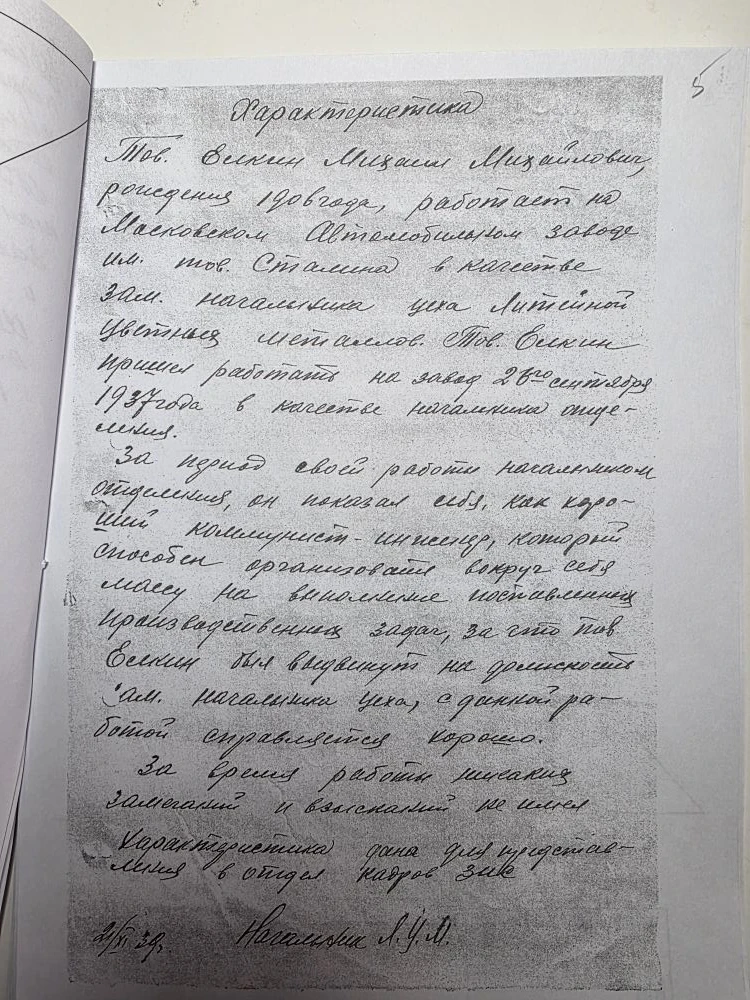 5
Характеристика
Тов. Елкин Михаил Михайлович,
рождения 1906 года, работает на
Московском Автомобильном заводе
им. тов. Сталина в качестве
зам. начальника цеха Литейной
цветных металлов. Тов. Елкин
пришел работать на завод 26го сентября
1937 года в качестве начальника отде-
ления.
За период своей работы начальником
отделения, он показал себя, как хоро-
ший коммунист-инженер, который
способен организовать вокруг себя
массу на выполнение поставленных
производственных задач, за что тов.
Елкин был выдвинут на должность
зам. начальника цеха, с данной ра-
ботой справляется хорошо.
За время работы никаких
замечаний и взысканий не имел
Характеристика дана для представ-
ления в отдел кадров ЗИС
21/XI 39г. Начальник Л.Ц.М.